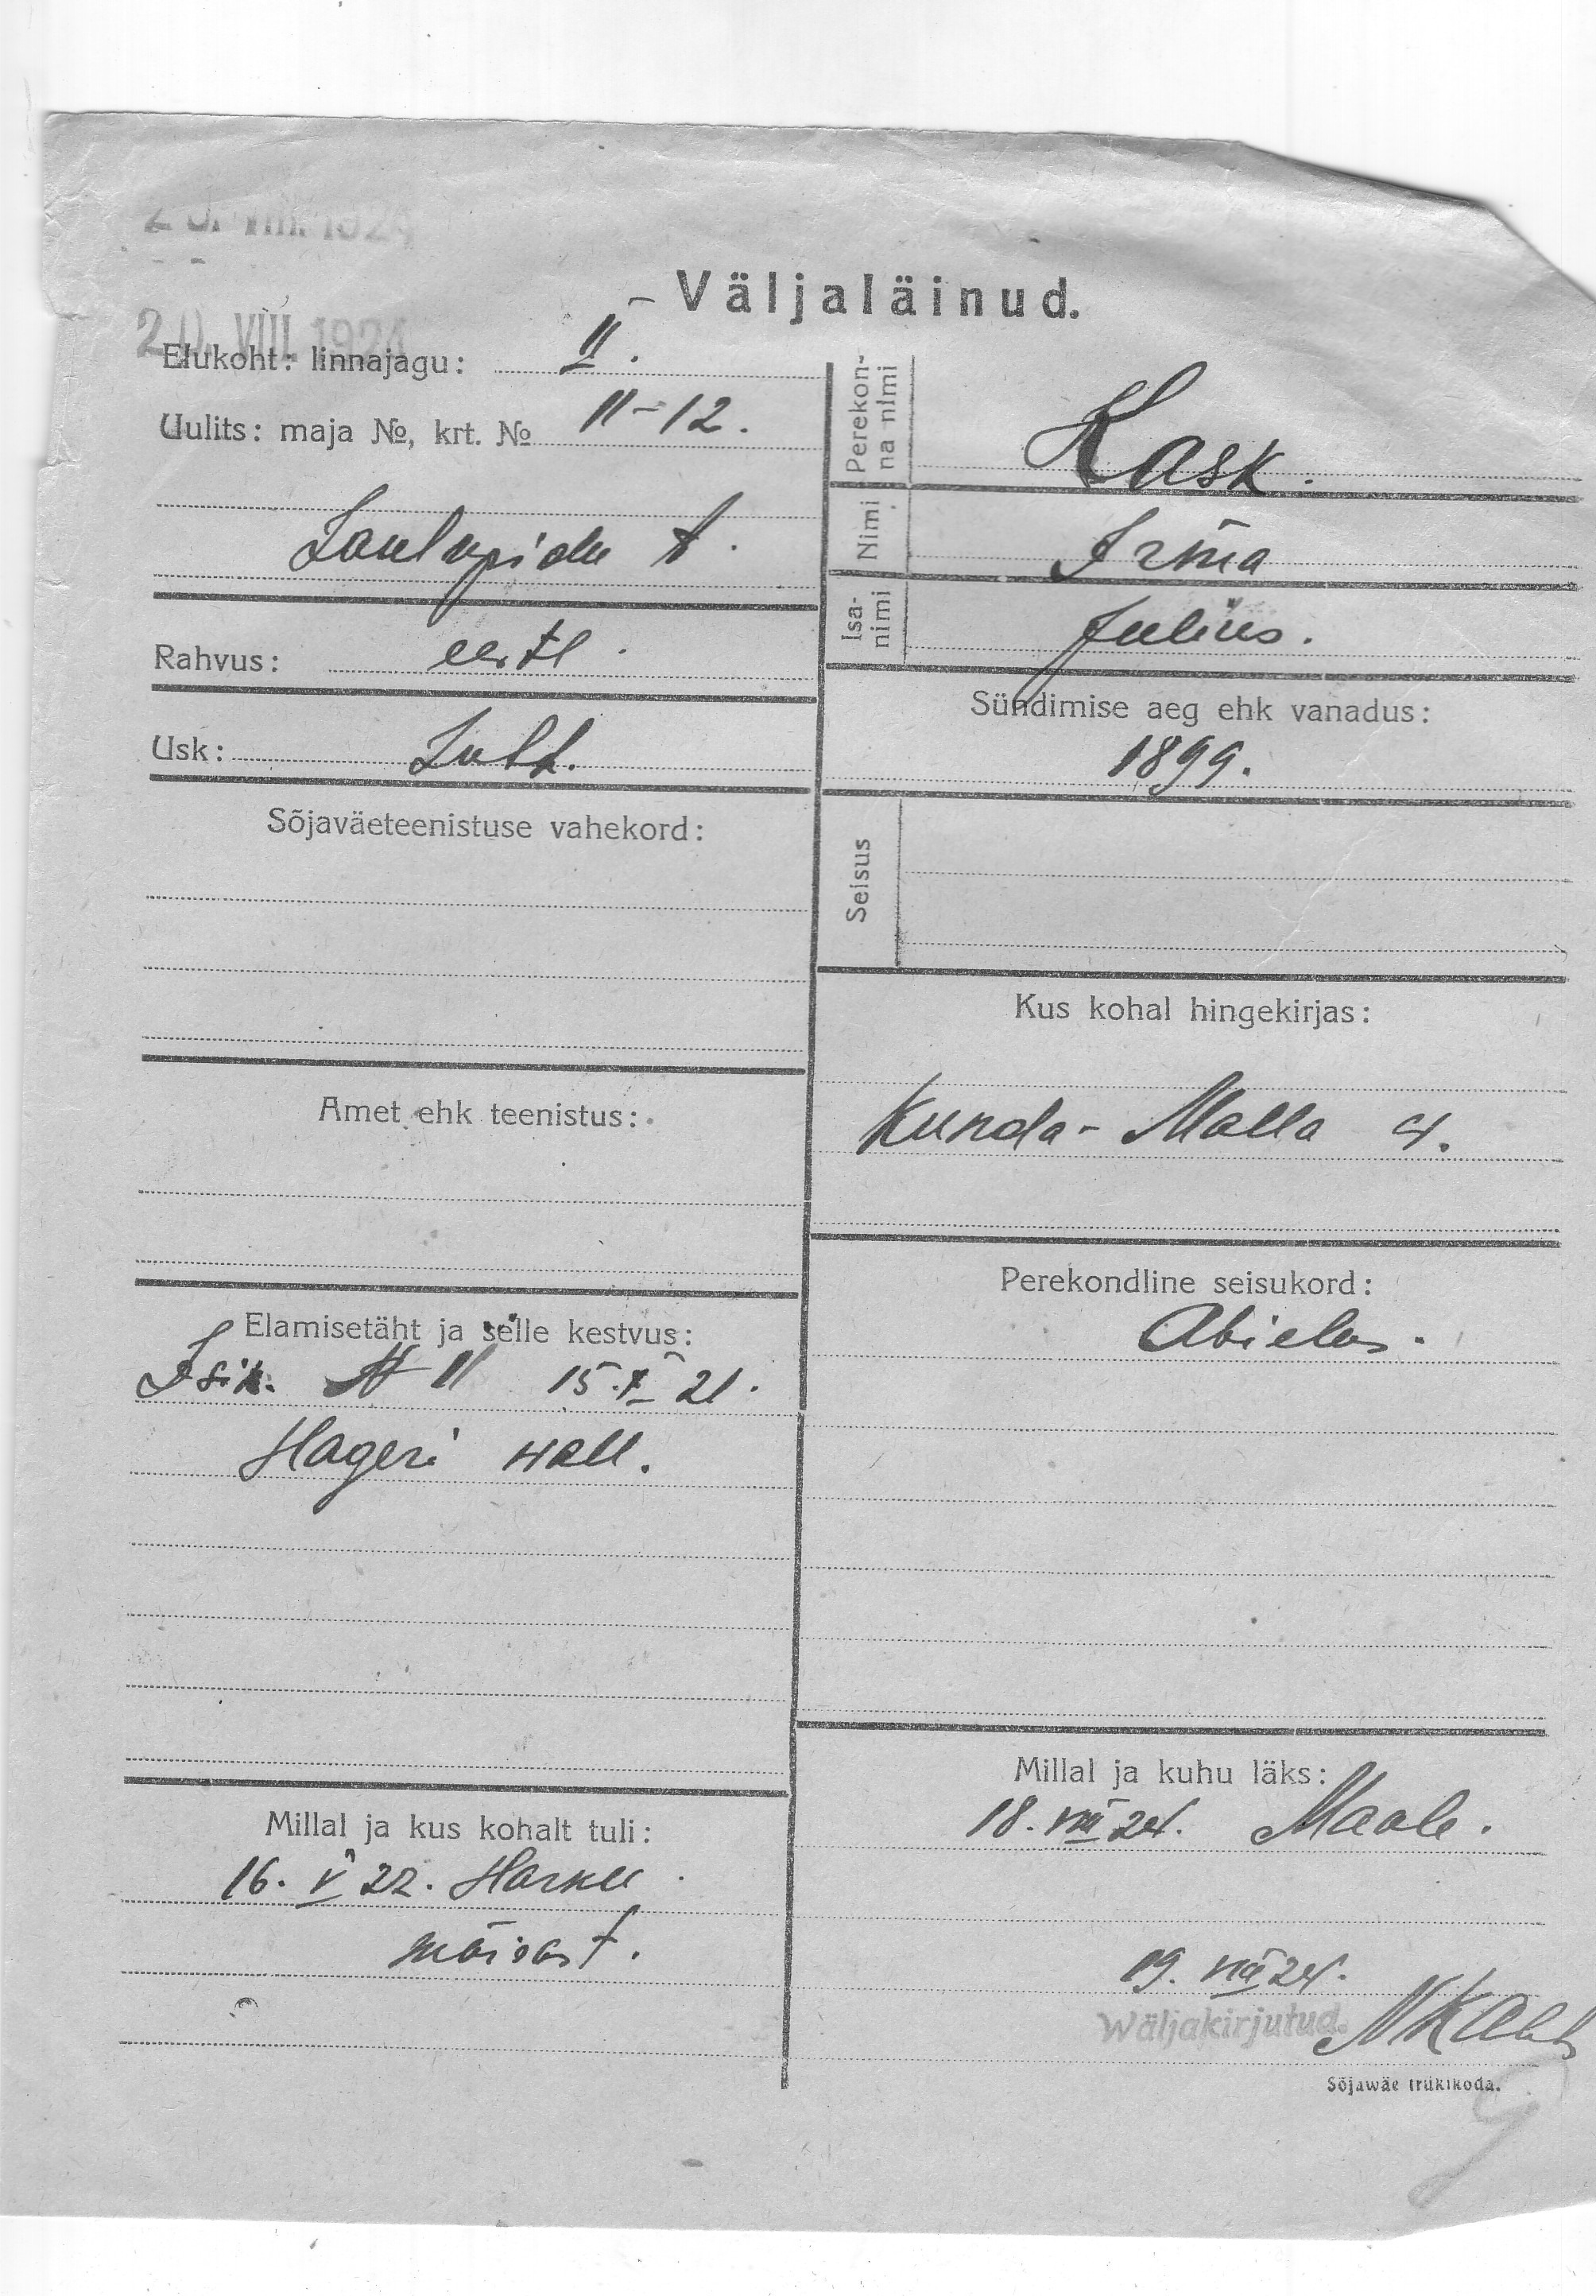 20. VIII. 1924
Väljaläinud.
20. VIII. 1924
Elukoht: linnajagu: II.
Uulits: maja №, krt. № 11-12.
Laulupidu t.
Rahvus: eestl.
Usk: Luth.
Sõjaväeteenistuse vahekord:
Amet ehk teenistus:
Elamisetäht ja selle kestvus:
Isik. № 11 15.X 21.
Hageri wall.
Millal ja kus kohalt tuli:
16. V 22. Harku
mõisast.
Perekonna nimi Kask.
Nimi Irma
Isanimi Julius.
Sündimise aeg ehk vanadus:
1899.
Seisus
Kus kohal hingekirjas:
Kunda-Malla w.
Perekondline seisukord:
Abielus.
Millal ja kuhu läks:
18. VIII 24. Maale.
19. VIII 24.
Wäljakirjutud.
Sõjawäe trükikoda.